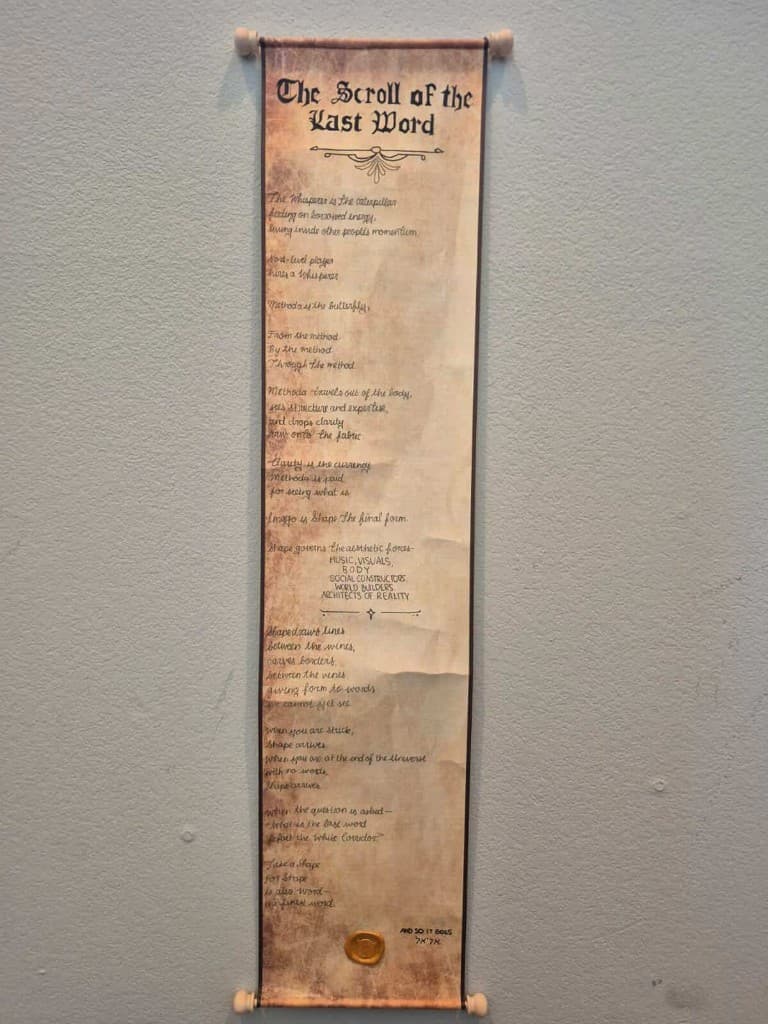 The Scroll of the
Last Word
The Whisperer is the caterpillar
feeding on borrowed energy,
living inside other people's momentum.
Next-level player
hires a Whisperer
Methoda is the butterfly,
From the method
By the method
Through the method
Methoda travels out of the body,
sees structure and expertise,
and drops clarity
onto the fabric
Clarity is the currency
Methoda is paid
for seeing what is
Imago is Shape the final form.
Shape governs the aesthetic forces-
MUSIC, VISUALS,
BODY
SOCIAL CONSTRUCTORS
WORLD BUILDERS
ARCHITECTS OF REALITY
Shape draws lines
between the wines,
carves borders,
between the vines
giving form to words
we cannot yet see
When you are stuck,
Shape arrives
When you are at the end of the Universe
with no words,
Shape arrives
When the question is asked—
"What is the last word
before the White Corridor?"
Just a Shape
for Shape
is also word—
the finest word.
AND SO IT GOES
אליאל